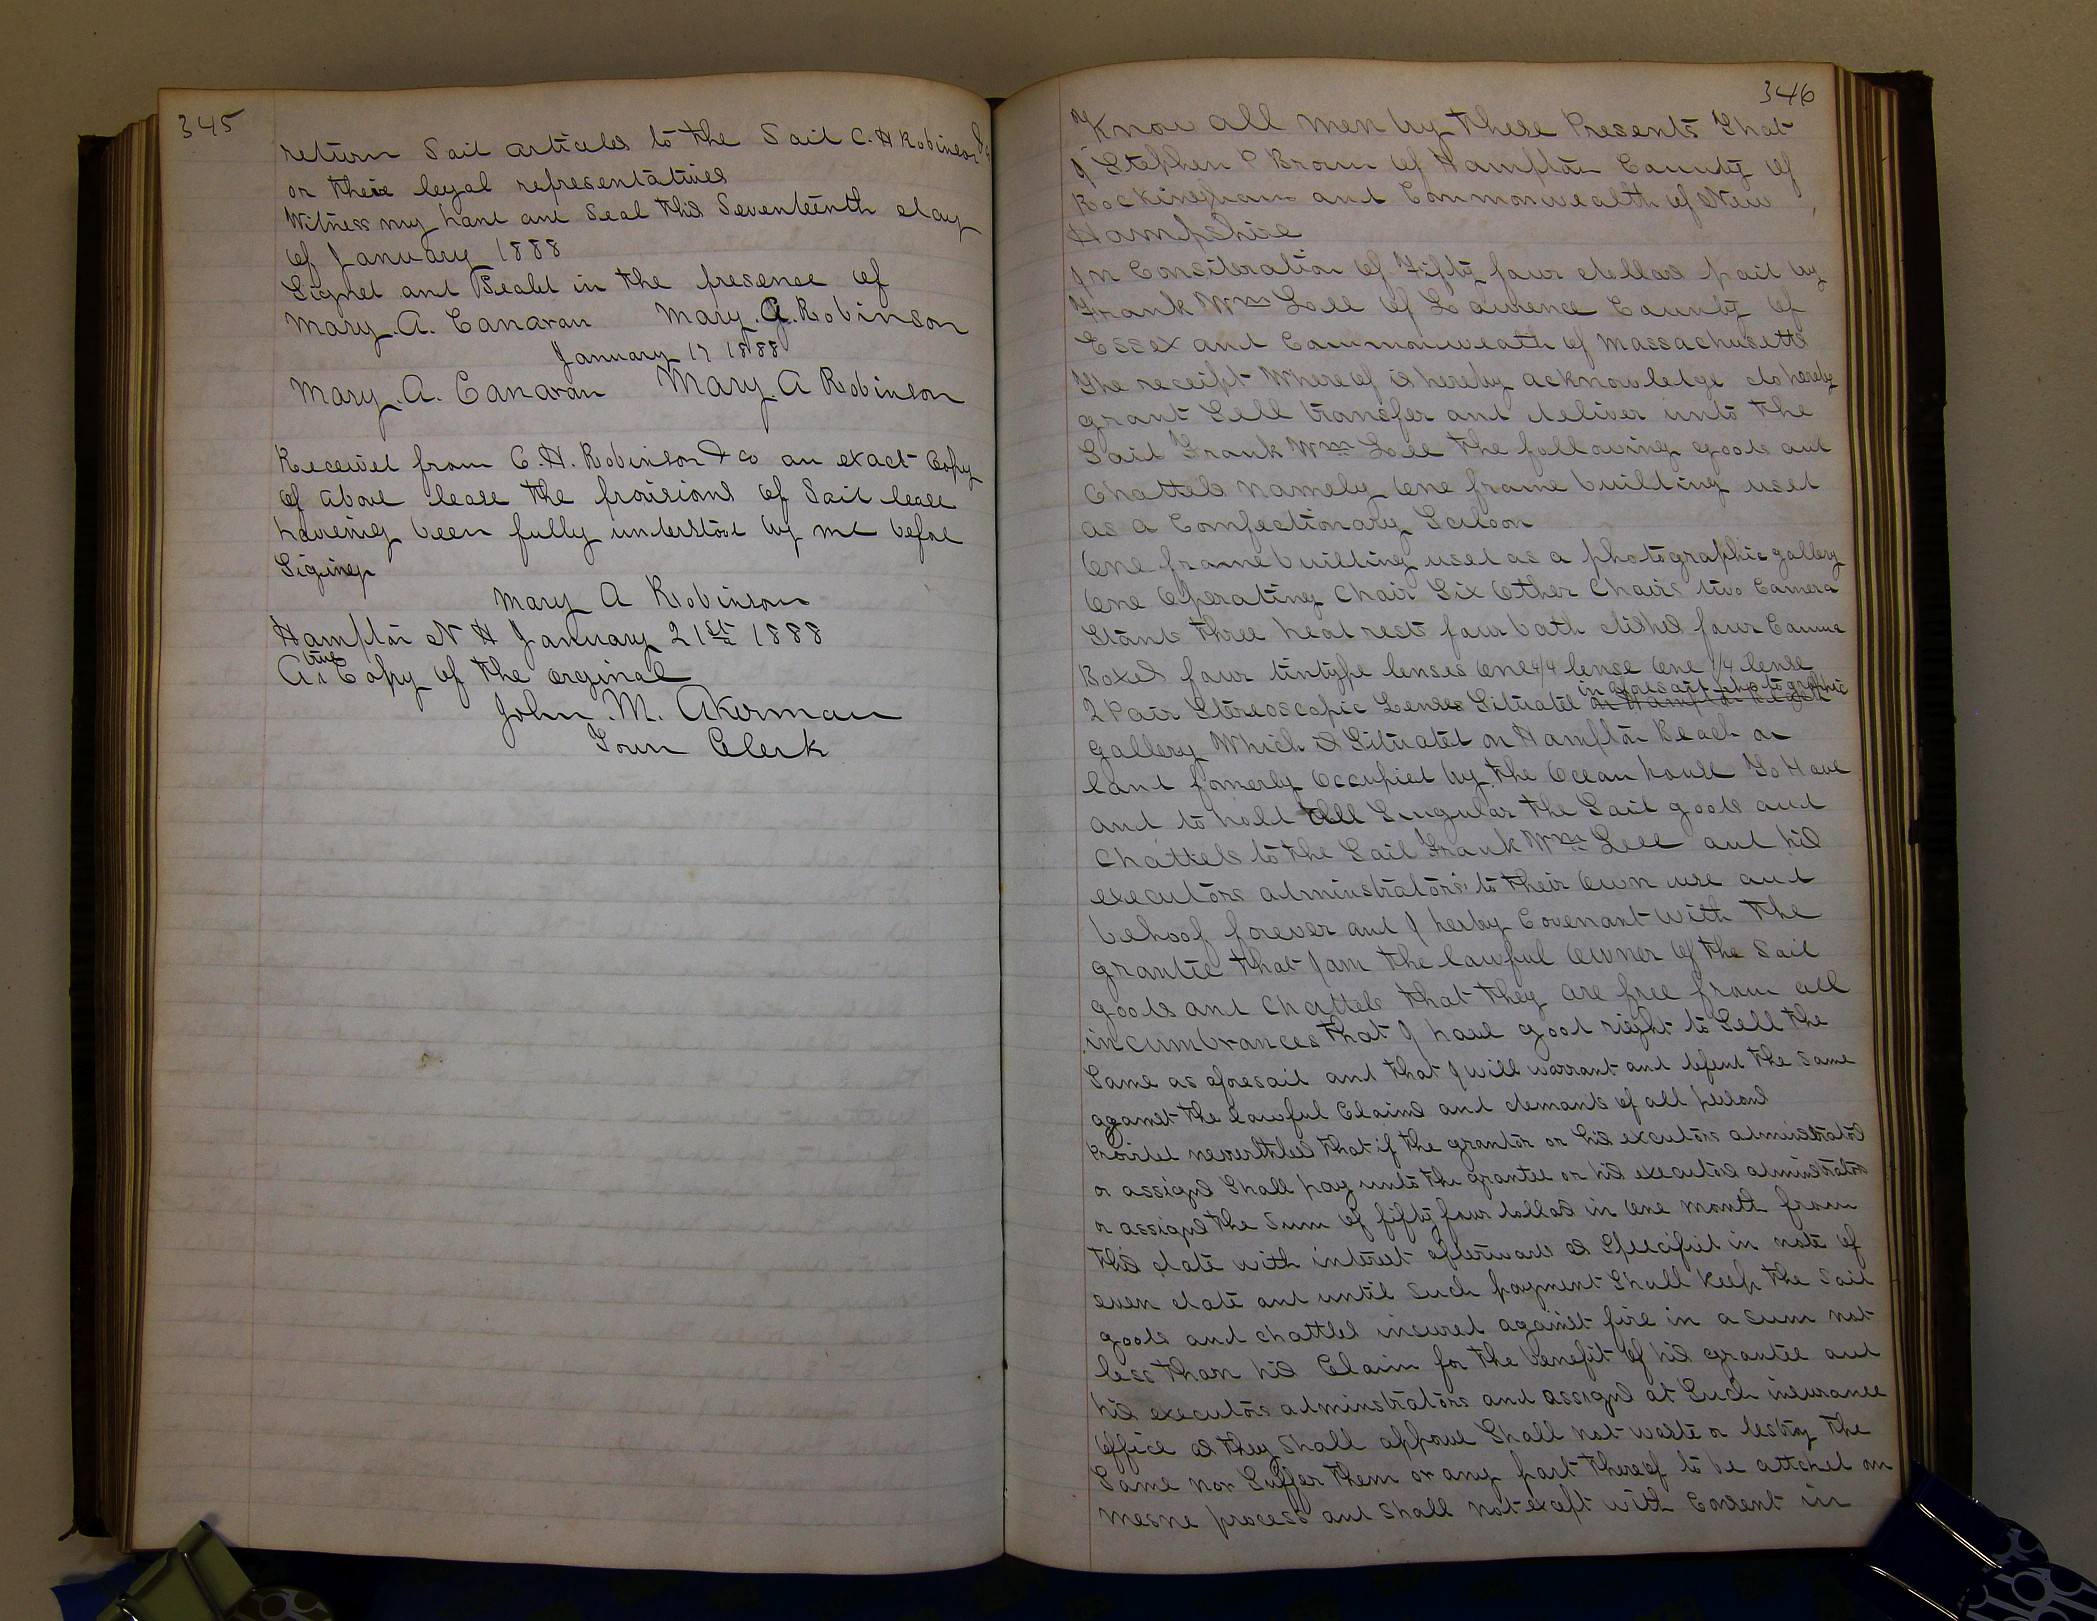 345
return Said articles to the Said C. H Robinson & Co
or theire legal representatives
Witness my hand and Seal this Seventeenth day
of January 1888
Signed and Sealed in the presence of
Mary. A. Canavan Mary. A. Robinson
January 17 1888
Mary. A. Canavan Mary. A Robinson
Received from C. H. Robinson & co an exact Copy
of above lease the provisions of Said lease
haveing been fully understood by me before
Signing
Mary A Robinson
Hampton N H January 21st 1888
A true Copy of the orginal
John. M. Akerman
Town Clerk
346
Know all men by these Presents That
I Stephen P Brown of Hampton County of
Rockingham and Commonwealth of New
Hampshire
In Consideration of Fifty four dollars paid by
Frank Wm Lee of Lawrence County of
Essex and Commonweath of Massachusetts
The receipt Whereof is hereby acknowledge do hereby
grant Sell transfer and deliver unto the
Said Frank Wm Lee the following goods and
Chattels namely One frame building used
as a Confectionary Saloon
One frame building used as a photographic gallery
One Operating Chair Six Other Chairs two Camera
Stands three head rests four bath dishes four Camera
Boxes four tintype lenses One 4/4 lense One 1/4 lense
2 Pair Stereoscopic Lenses Situated in aforesaid photographic
gallery Which is Situated on Hampton Beach on
land fomerly Occupied by the Ocean house To Have
and to hold all Singular the Said goods and
Chattels to the Said Frank Wm Lee and his
executors adminstrators to their Own use and
behoof forever and I herby Covenant with the
grantee that I am the lawful Owner of the Said
goods and Chattels that they are free from all
incumbrances that I have good right to Sell the
Same as aforesaid and that I will warrant and defend the Same
against the lawful Claims and demands of all persons
Provided neverthles that if the grantor or his executors adminstrators
or assigns Shall pay unto the grantee or his executors adminstrators
or assigns the Sum of fifty four dollars in One Month from
this date with interest afterwards as Specified in note of
even date and until Such payment Shall keep the Said
goods and chattles insured against fire in a Sum not
less than his Claim for the benefit of his grantee and
his executors adminstrators and assigns at Such insurance
Office as they Shall appove Shall not waste or destroy the
Same nor Suffer them or any part thereof to be attched on
mesne process and Shall not exept with Consent in